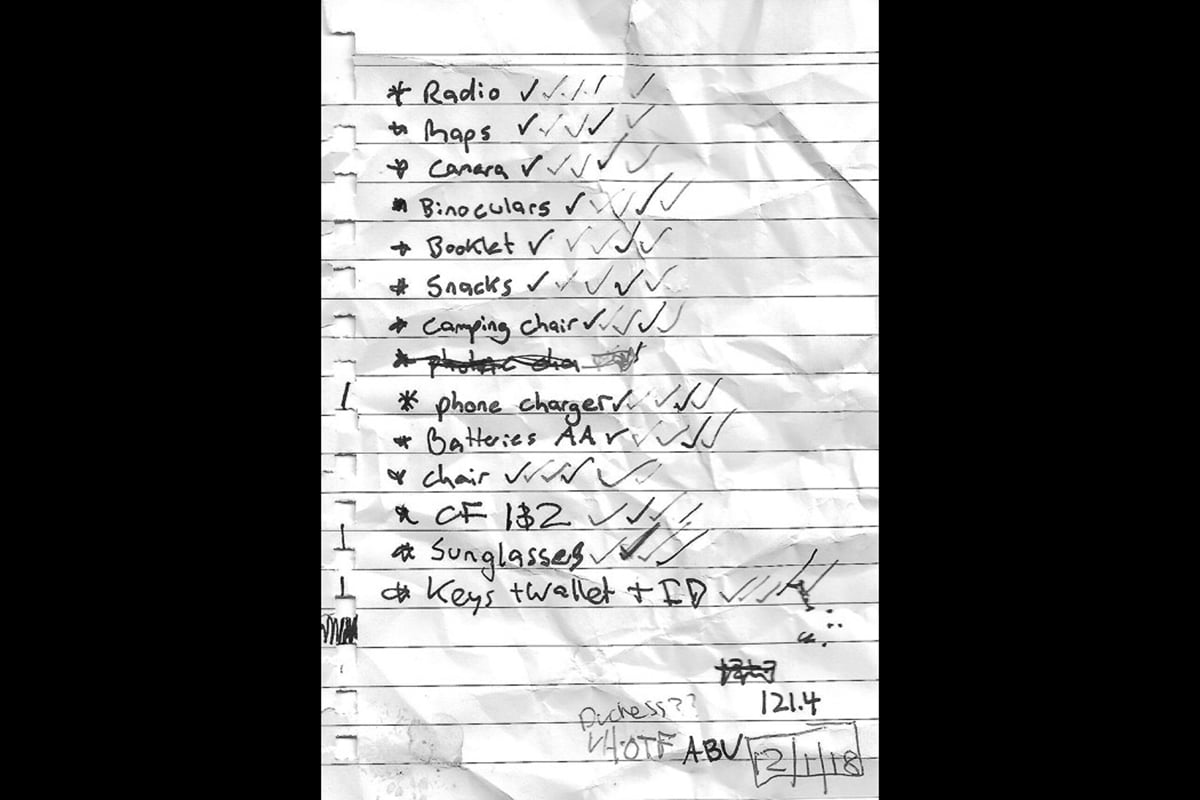 * Radio ✓✓✓✓ ✓
* Maps ✓✓✓✓ ✓
* Camara ✓✓✓✓✓
* Binoculars ✓✓✓✓✓
* Booklet ✓✓✓✓✓
* Snacks ✓✓✓✓✓
* Camping chair ✓✓✓✓✓
* phone charger ✓✓✓✓✓
* Batteries AA ✓✓✓✓✓
* chair ✓✓✓✓ ✓✓
* CF 1&2 ✓✓✓✓
* Sunglasses ✓✓✓✓
* Keys + Wallet + ID ✓✓✓✓✓
121.4
Duchess??
ABV 12|1|18